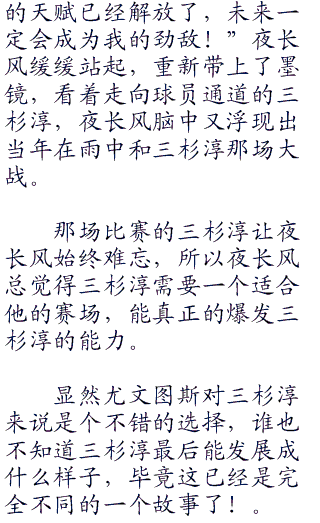 的天赋已经解放了，未来一
定会成为我的劲敌！”夜长
风缓缓站起，重新带上了墨
镜，看着走向球员通道的三
杉淳，夜长风脑中又浮现出
当年在雨中和三杉淳那场大
战。
那场比赛的三杉淳让夜
长风始终难忘，所以夜长风
总觉得三杉淳需要一个适合
他的赛场，能真正的爆发三
杉淳的能力。
显然尤文图斯对三杉淳
来说是个不错的选择，谁也
不知道三杉淳最后能发展成
什么样子，毕竟这已经是完
全不同的一个故事了！。